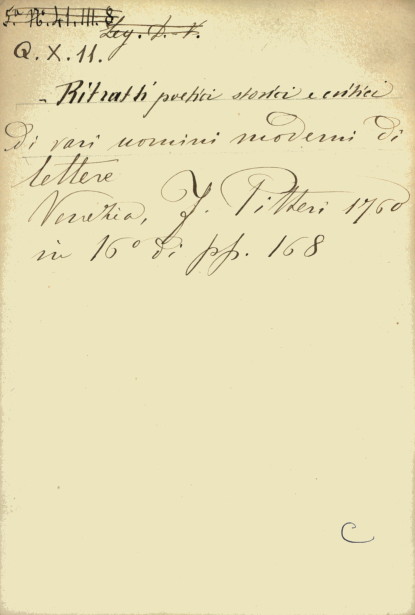 Leg. D. V.
Q. X. 11.
- Ritratti poetici storici e critici
Di vari uomini moderni di
lettere
Venezia, F. Pitteri 1760
in 16° di pp. 168
C